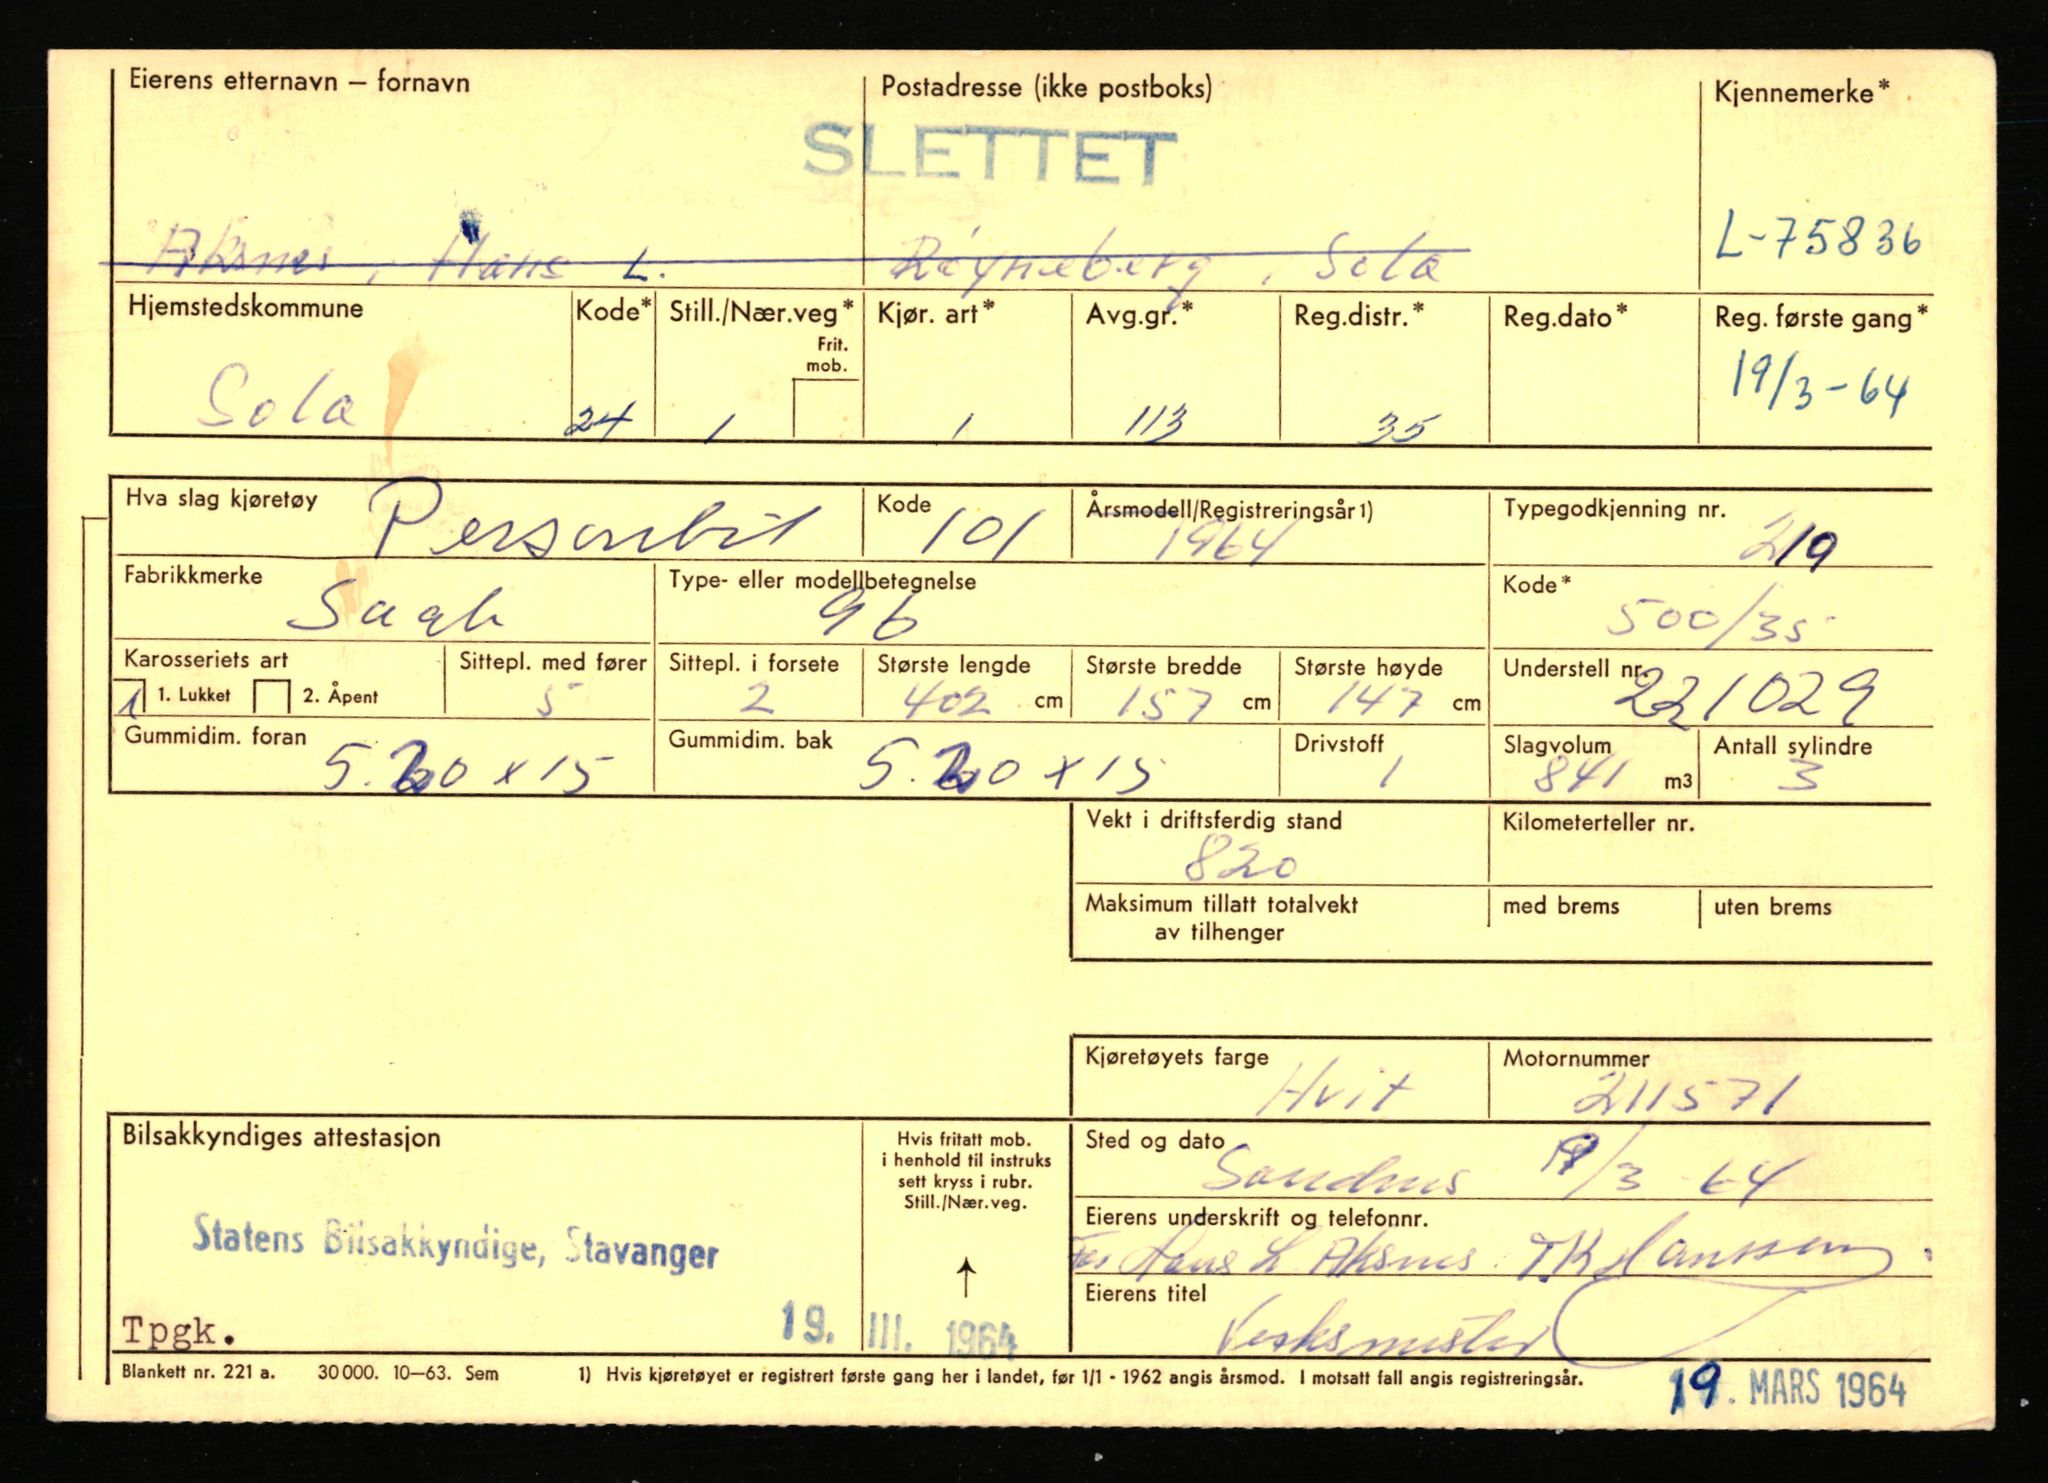 Eierens etternavn — fornavn Postadresse (ikke postboks) Kjennemerke*
SLETTET
Aksnes, Hans L. Røyneberg, Sola L-75836
Hjemstedskommune Kode* Still./Nær.veg* Kjør. art* Avg.gr.* Reg.distr.* Reg.dato* Reg. første gang*
Frit.
mob.
Sola 24 1 1 113 35 19/3-64
Hva slag kjøretøy Personbil Kode 101 Årsmodell/Registreringsår 1) 1964 Typegodkjenning nr. 219
Fabrikkmerke Saab Type- eller modellbetegnelse 96 Kode* 500/35
Karosseriets art Sittepl. med fører Sittepl. i forsete Største lengde Største bredde Største høyde Understell nr.
1 1. Lukket 2. Åpent 5 2 402 cm 157 cm 147 cm 221029
Gummidim. foran Gummidim. bak Drivstoff Slagvolum Antall sylindre
5.20 x 15 5.20 x 15 1 841 m3 3
Vekt i driftsferdig stand Kilometerteller nr.
820
Maksimum tillatt totalvekt med brems uten brems
av tilhenger
Kjøretøyets farge Motornummer
Hvit 211571
Bilsakkyndiges attestasjon
Hvis fritatt mob.
i henhold til instruks
sett kryss i rubr.
Still./Nær.veg.
Sted og dato
Sandnes 19/3 64
Statens Bilsakkyndige, Stavanger
Eierens underskrift og telefonnr.
For Hans L Aksnes TK Hanssen
Eierens titel
Verksmester
Tpgk. 19. III. 1964
Blankett nr. 221 a. 30 000. 10—63. Sem 1) Hvis kjøretøyet er registrert første gang her i landet, før 1/1 - 1962 angis årsmod. I motsatt fall angis registreringsår.
19. MARS 1964